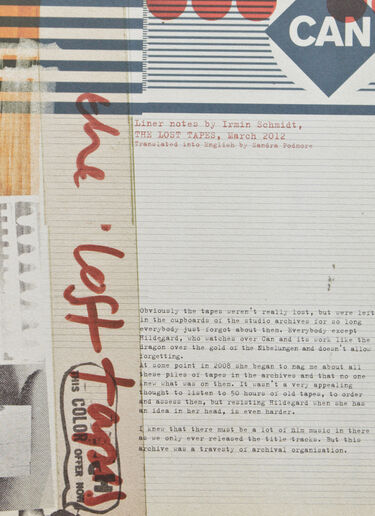 CAN
Liner notes by Irmin Schmidt,
THE LOST TAPES, March 2012
Translated into English by Sandra Podmore
the lost tapes
THIS
COLOR
OFFER NOW
Obviously the tapes weren't really lost, but were left
in the cupboards of the studio archives for so long
everybody just forgot about them. Everybody except
Hildegard, who watches over Can and its work like the
dragon over the gold of the Nibelungen and doesn't allow
forgetting.
At some point in 2008 she began to nag me about all
these piles of tapes in the archives and that no one
knew what was on them. It wasn't a very appealing
thought to listen to 50 hours of old tapes, to order
and assess them, but resisting Hildegard when she has
an idea in her head, is even harder.
I knew that there must be a lot of film music in there
as we only ever released the title tracks. But this
archive was a travesty of archival organisation.